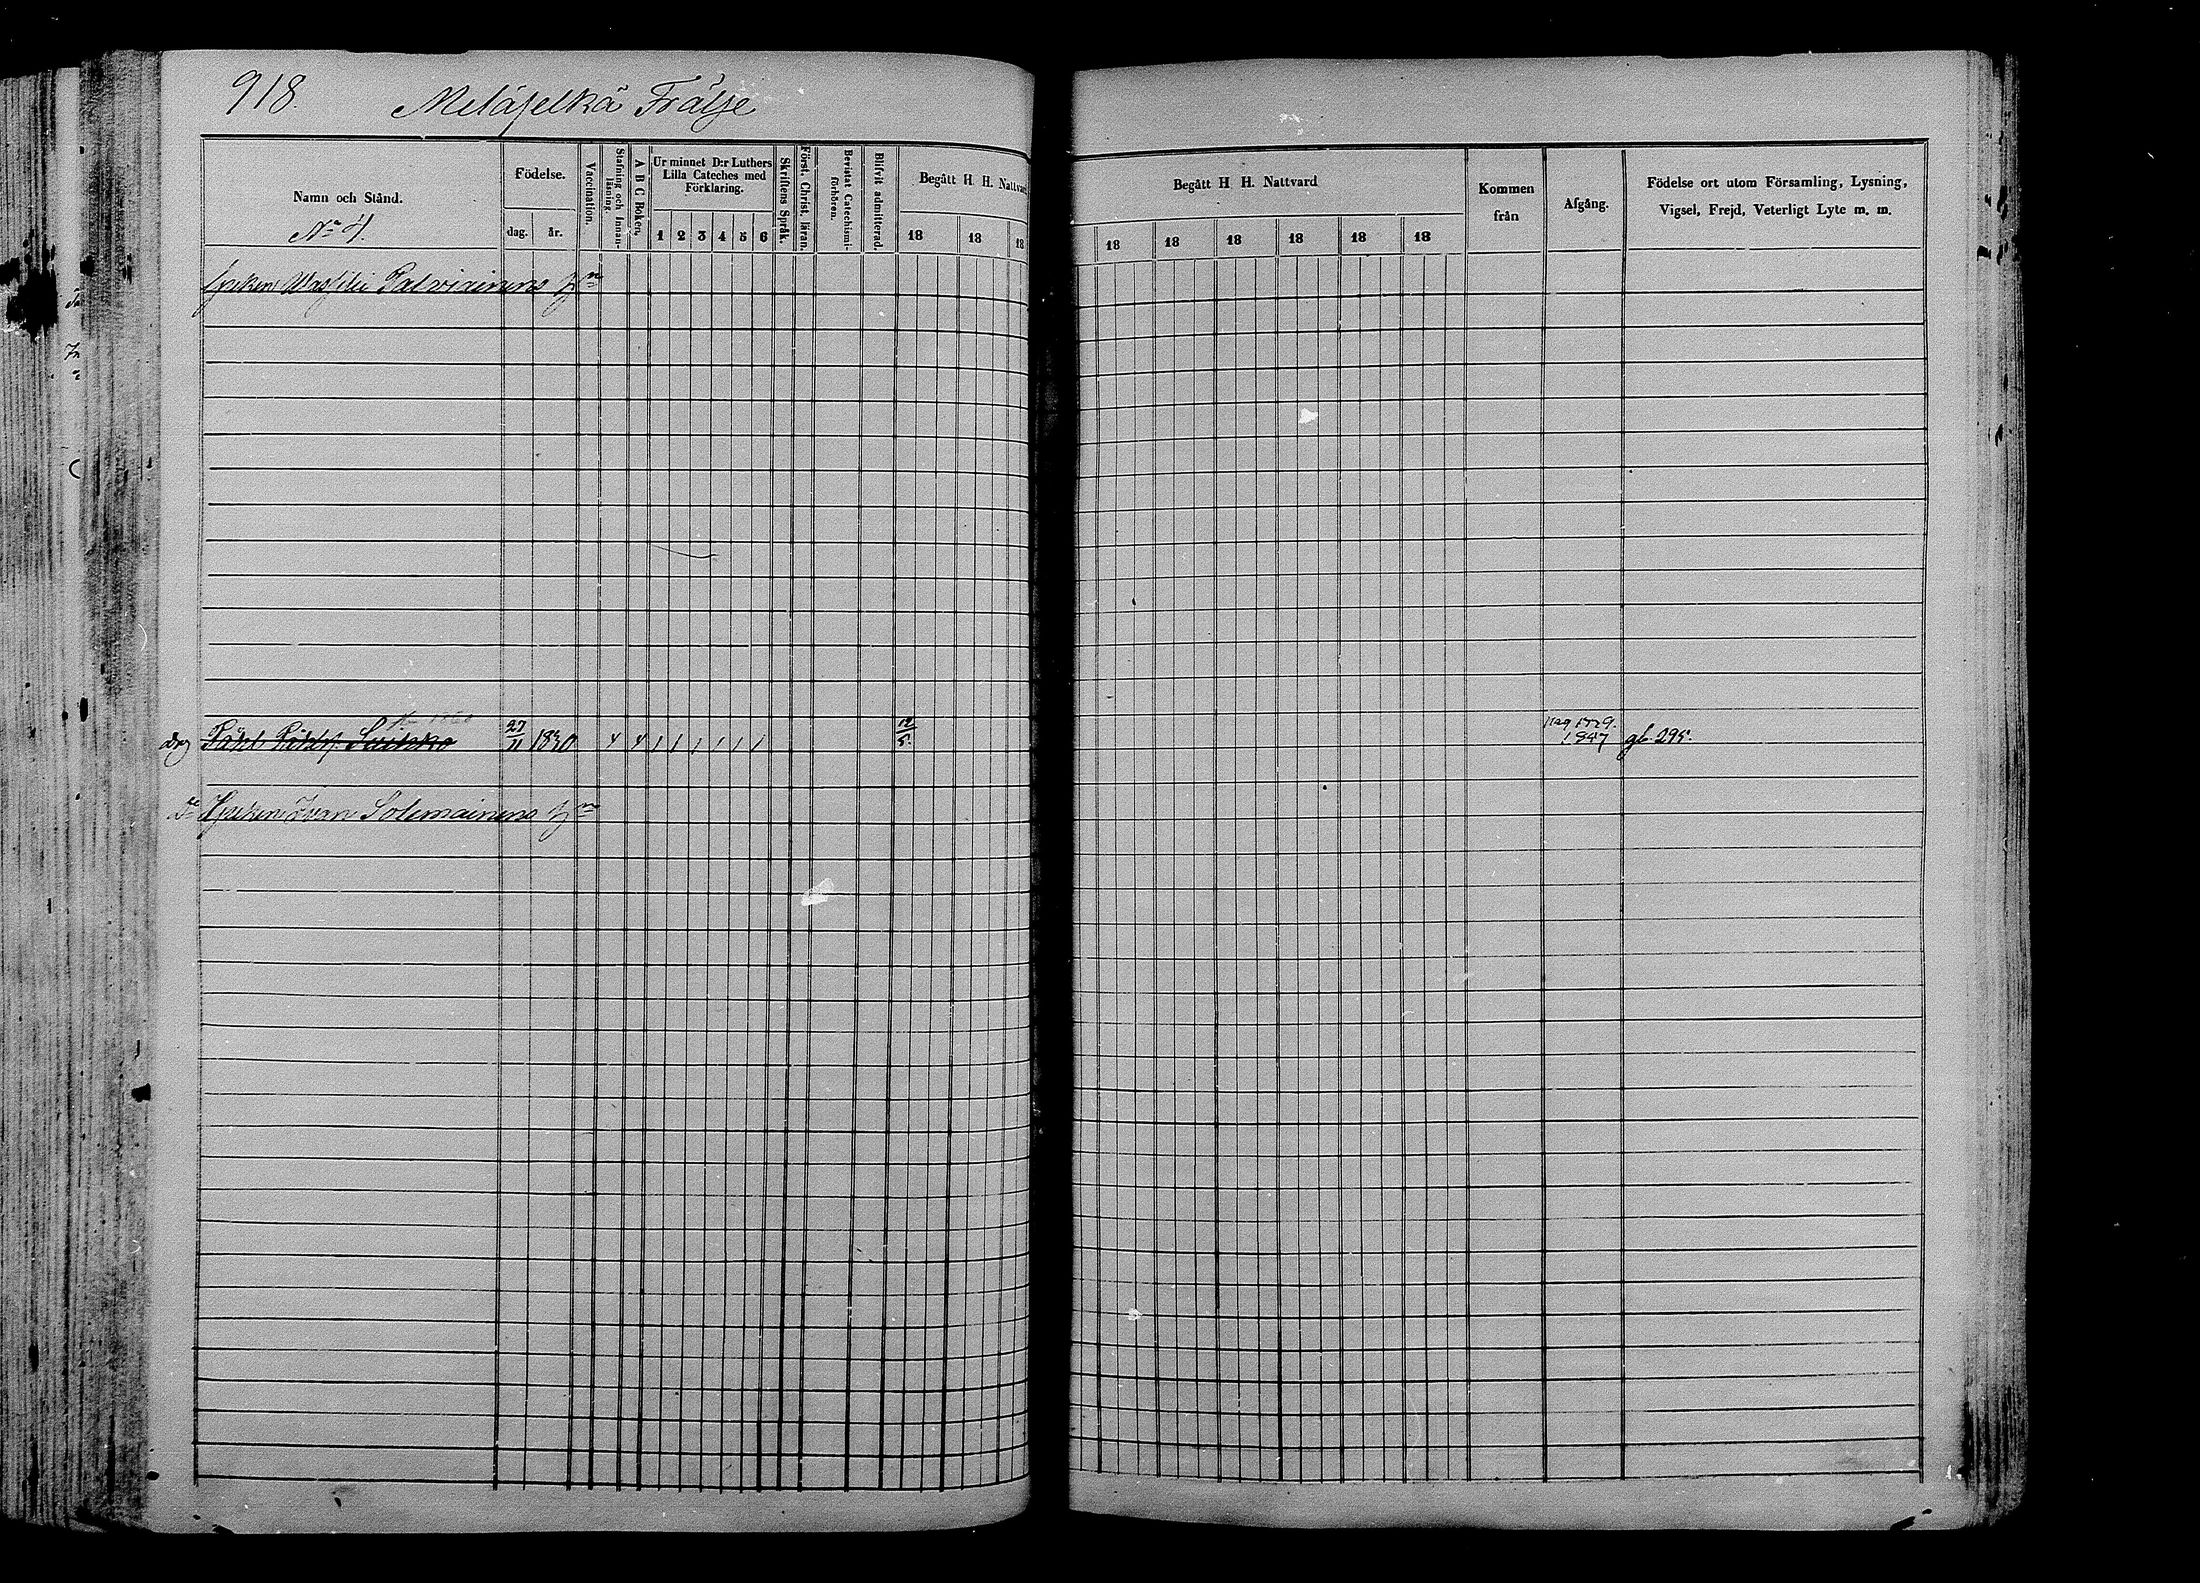 918.
Metäselkä Frälse
Namn och Stånd.
No 4.
Födelse.
dag. år.
Vaccination.
Stafning och Innanläsning.
A B C Boken.
Ur minnet D:r Luthers
Lilla Cateches med
Förklaring.
1 2 3 4 5 6
Skriftens Språk.
Först. Christ. läran.
Bevistat Catechismiförhören.
Blifvit admitterad.
Begått H. H. Nattvard
18 18 18
Begått H. H. Nattvard
18 18 18 18 18 18
Kommen
från
Afgång.
Födelse ort utom Församling, Lysning,
Vigsel, Frejd, Veterligt Lyte m. m.
Wasilei Palviainens
Drg Suikka 27/11 1830 4 4 1 1 1 1 1 1 12/5. 1847 gb. 295.
Ivan Solemainens